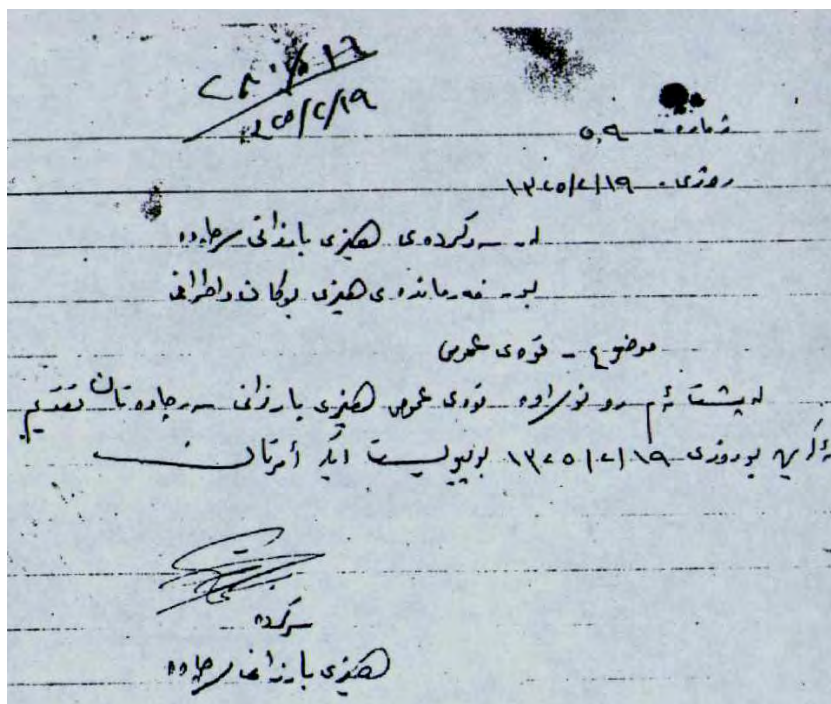 ٢٥/٢/١٩
ژماره - ٥٠٩
روژی - ١٣٢٥/٢/١٩
له - سه رکرده ی هیزی بارزانی سرچاوه
بو - فه رمانده ی هیزی بوکان و اطرافی
موضوع - قوه ی عمومی
له پشت ئه م نوسراوه قوه ی عمومی هیزی بارزانی سه رچاوه تان تقدیم
ئه کرین بو روژی ١٣٢٥/٢/١٩ بو پیویست أمرتان
سرکرده
هیزی بارزانی سرچاوه